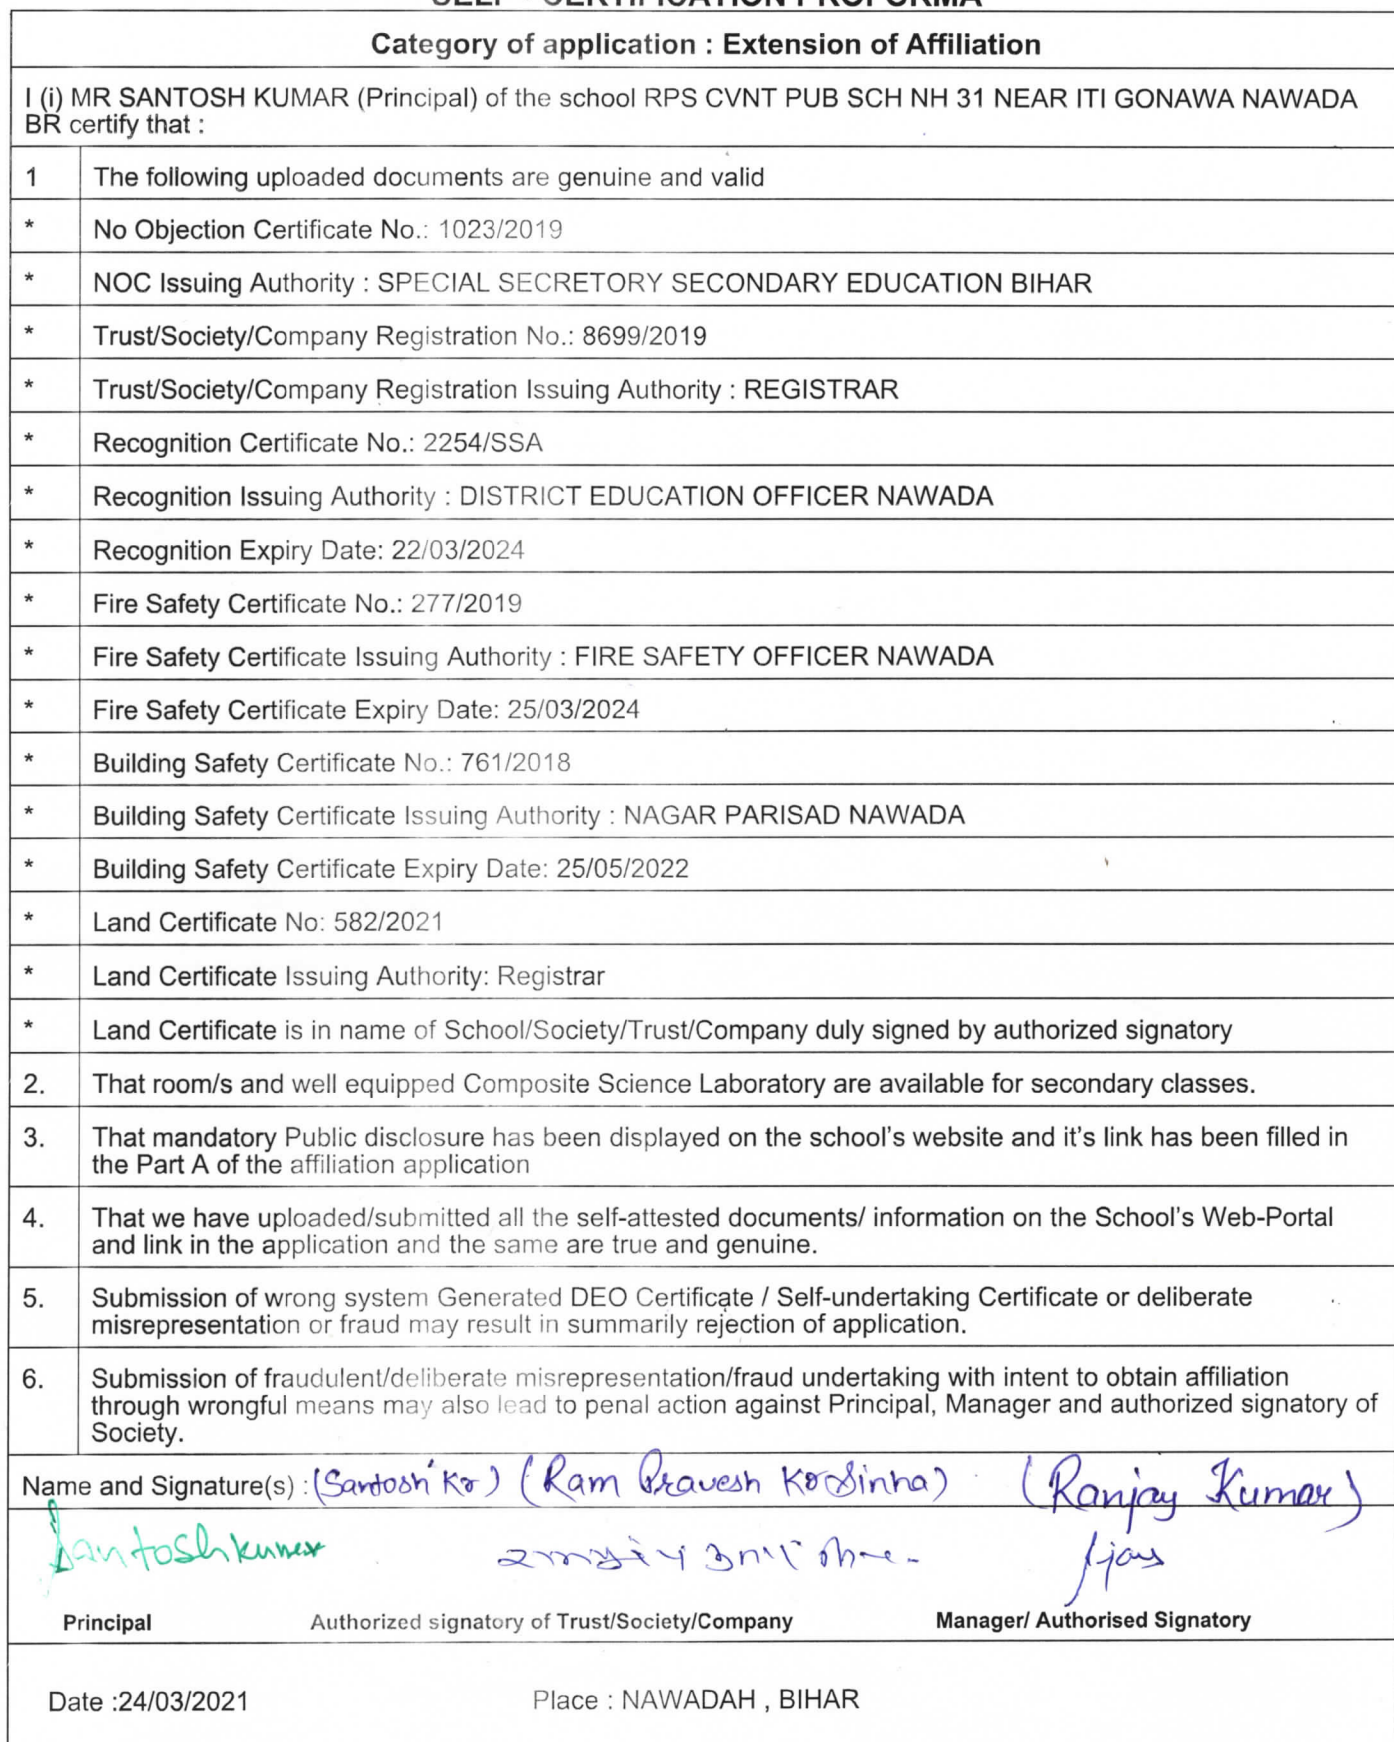 SELF - CERTIFICATION PROFORMA
Category of application : Extension of Affiliation
I (i) MR SANTOSH KUMAR (Principal) of the school RPS CVNT PUB SCH NH 31 NEAR ITI GONAWA NAWADA
BR certify that :
1 The following uploaded documents are genuine and valid
* No Objection Certificate No.: 1023/2019
* NOC Issuing Authority : SPECIAL SECRETORY SECONDARY EDUCATION BIHAR
* Trust/Society/Company Registration No.: 8699/2019
* Trust/Society/Company Registration Issuing Authority : REGISTRAR
* Recognition Certificate No.: 2254/SSA
* Recognition Issuing Authority : DISTRICT EDUCATION OFFICER NAWADA
* Recognition Expiry Date: 22/03/2024
* Fire Safety Certificate No.: 277/2019
* Fire Safety Certificate Issuing Authority : FIRE SAFETY OFFICER NAWADA
* Fire Safety Certificate Expiry Date: 25/03/2024
* Building Safety Certificate No.: 761/2018
* Building Safety Certificate Issuing Authority : NAGAR PARISAD NAWADA
* Building Safety Certificate Expiry Date: 25/05/2022
* Land Certificate No: 582/2021
* Land Certificate Issuing Authority: Registrar
* Land Certificate is in name of School/Society/Trust/Company duly signed by authorized signatory
2. That room/s and well equipped Composite Science Laboratory are available for secondary classes.
3. That mandatory Public disclosure has been displayed on the school's website and it's link has been filled in
the Part A of the affiliation application
4. That we have uploaded/submitted all the self-attested documents/ information on the School's Web-Portal
and link in the application and the same are true and genuine.
5. Submission of wrong system Generated DEO Certificate / Self-undertaking Certificate or deliberate
misrepresentation or fraud may result in summarily rejection of application.
6. Submission of fraudulent/deliberate misrepresentation/fraud undertaking with intent to obtain affiliation
through wrongful means may also lead to penal action against Principal, Manager and authorized signatory of
Society.
Name and Signature(s) : (Santosh Kr) (Ram Pravesh Kr Sinha) (Ranjay Kumar)
Santosh kumar
Principal Authorized signatory of Trust/Society/Company Manager/ Authorised Signatory
Date :24/03/2021 Place : NAWADAH , BIHAR